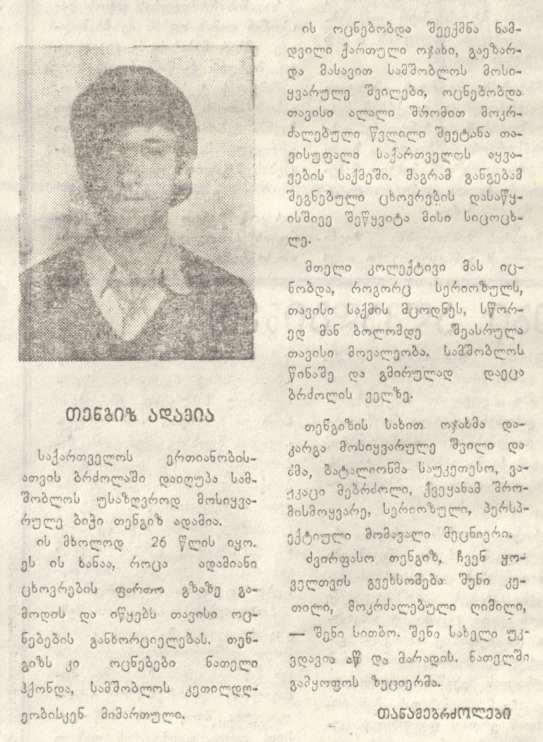 თენგიზ ადამია
საქართველოს ერთიანობის-
ათვის ბრძოლაში დაიღუპა სამ-
შობლოს უსაზღვროდ მოსიყვა-
რულე ბიჭი თენგიზ ადამია.
ის მხოლოდ 26 წლის იყო.
ეს ის ხანაა, როცა ადამიანი
ცხოვრების ფართო გზაზე გა-
მოდის და იწყებს თავისი ოც-
ნებების განხორციელებას. თენ-
გიზს კი ოცნებები ნათელი
ჰქონდა, სამშობლოს კეთილდღ-
ეობისკენ მიმართული.
ის ოცნებობდა შეექმნა ნამ-
დვილი ქართული ოჯახი, გაეზარ-
და მასავით სამშობლოს მოსი-
ყვარულე შვილები, ოცნებობდა
თავისი ალალი შრომით მოკრ-
ძალებული წვლილი შეეტანა თა-
ვისუფალი საქართველოს აყვა-
ვების საქმეში. მაგრამ განგებამ
შეგნებული ცხოვრების დასაწყ-
ისშივე შეწყვიტა მისი სიცოცხ-
ლე.
მთელი კოლექტივი მას იც-
ნობდა, როგორც სერიოზულს,
თავისი საქმის მცოდნეს, სწორ-
ედ მან ბოლომდე შეასრულა
თავისი მოვალეობა. სამშობლოს
წინაშე და გმირულად დაეცა
ბრძოლის ველზე.
თენგიზის სახით ოჯახმა და-
კარგა მოსიყვარულე შვილი და
ძმა, ბატალიონმა საუკეთესო, ვა-
ჟკაცი მებრძოლი, ქვეყანამ შრო-
მისმოყვარე, სერიოზული, პერსპ-
ექტიული მომავალი მეცნიერი.
ძვირფასო თენგიზ, ჩვენ ყო-
ველთვის გვეხსომება შენი კე-
თილი, მოკრძალებული ღიმილი,
— შენი სითბო. შენი სახელი უკ-
ვდავია აწ და მარადის. ნათელში
გამყოფოს ზეციერმა.
თანამებრძოლები